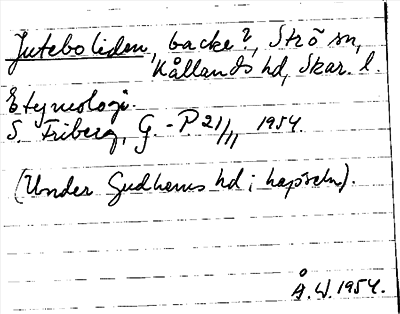 Juteboliden, backe?, Strö sn,
Kållands hd, Skar. l.
Etymologi.
S. Friberg, G. - P. 21/11 1954.
(Under Gudhems hd i kapseln).
Å.W. 1954.